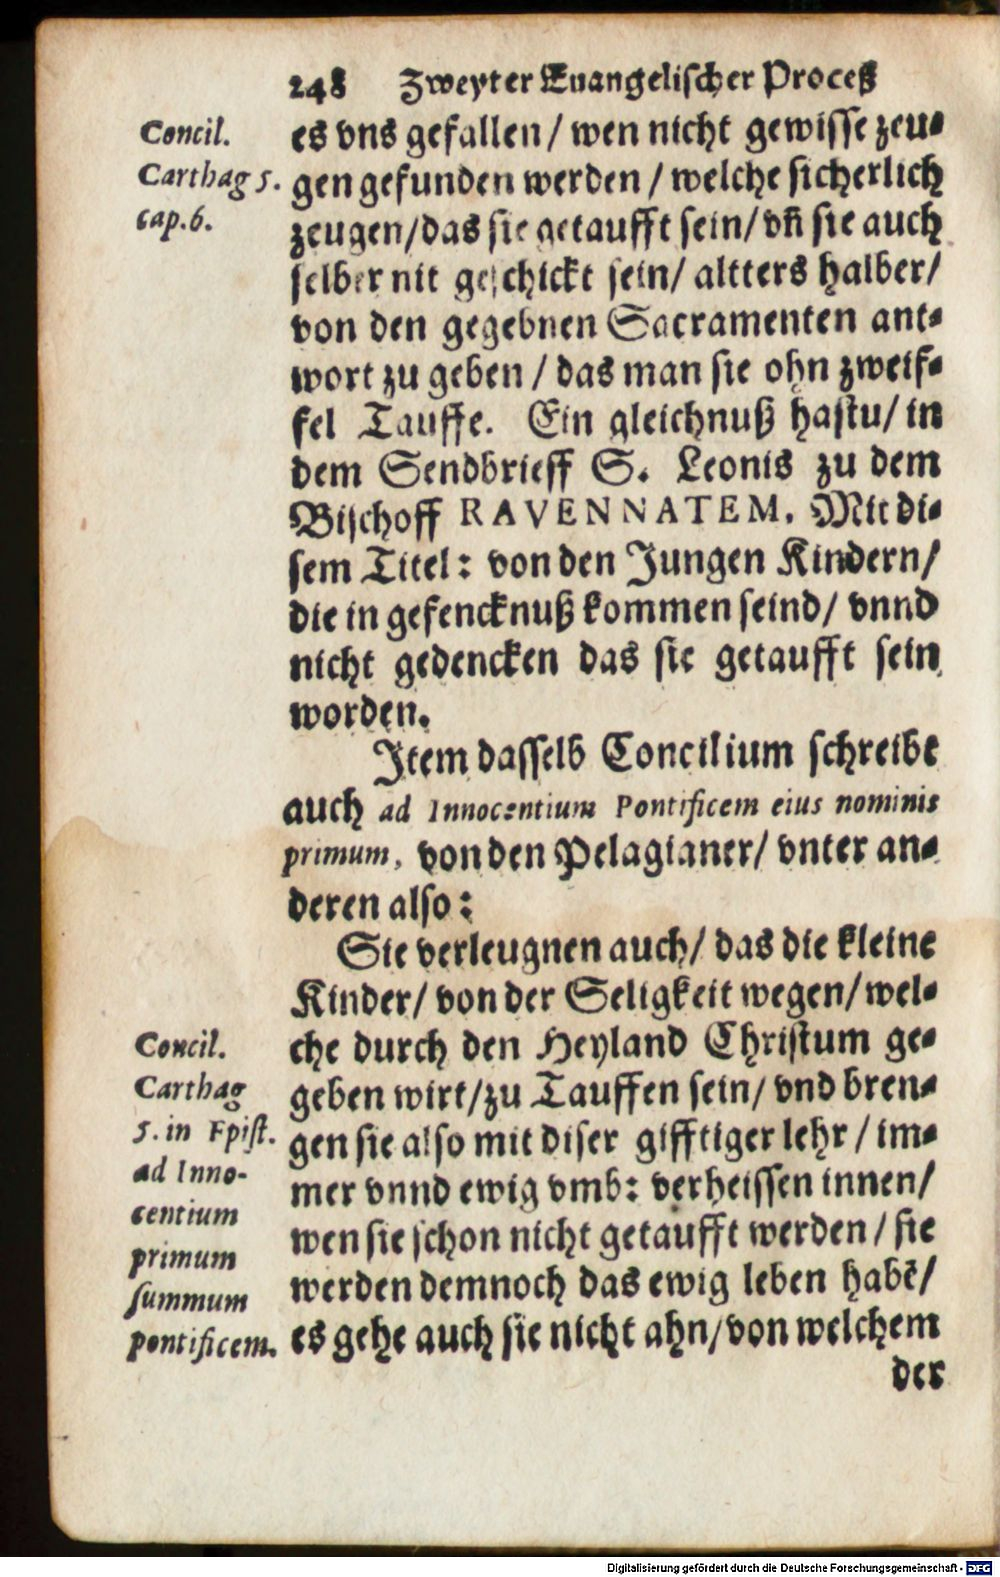 248 Zweyter Euangelischer Proceß
Concil.
Carthag 5.
cap. 6.
es vns gefallen / wen nicht gewisse zeu-
gen gefunden werden / welche sicherlich
zeugen/das sie getaufft sein/ vñ sie auch
selber nit geschickt sein/ altters halber/
von den gegebnen Sacramenten ant-
wort zu geben / das man sie ohn zweif-
fel Tauffe. Ein gleichnuß hastu/ in
dem Sendbrieff S. Leonis zu dem
Bischoff RAVENNATEM. Mit di-
sem Titel: von den Jungen Kindern/
die in gefencknuß kommen seind/ vnnd
nicht gedencken das sie getaufft sein
worden.
Item dasselb Concilium schreibt
auch ad Innocentium Pontificem eius nominis
primum, von den Pelagianer/ vnter an-
deren also:
Sie verleugnen auch/ das die kleine
Kinder/ von der Seligkeit wegen/ wel-
che durch den Heyland Christum ge-
geben wirt/zu Tauffen sein/ vnd bren-
gen sie also mit diser gifftiger lehr / im-
mer vnnd ewig vmb: verheissen innen/
wen sie schon nicht getaufft werden / sie
werden demnoch das ewig leben habẽ/
es gehe auch sie nicht ahn/von welchem
der
Concil.
Carthag
5. in Epist.
ad Inno-
centium
primum
summum
pontificem.
Digitalisierung gefördert durch die Deutsche Forschungsgemeinschaft - DFG